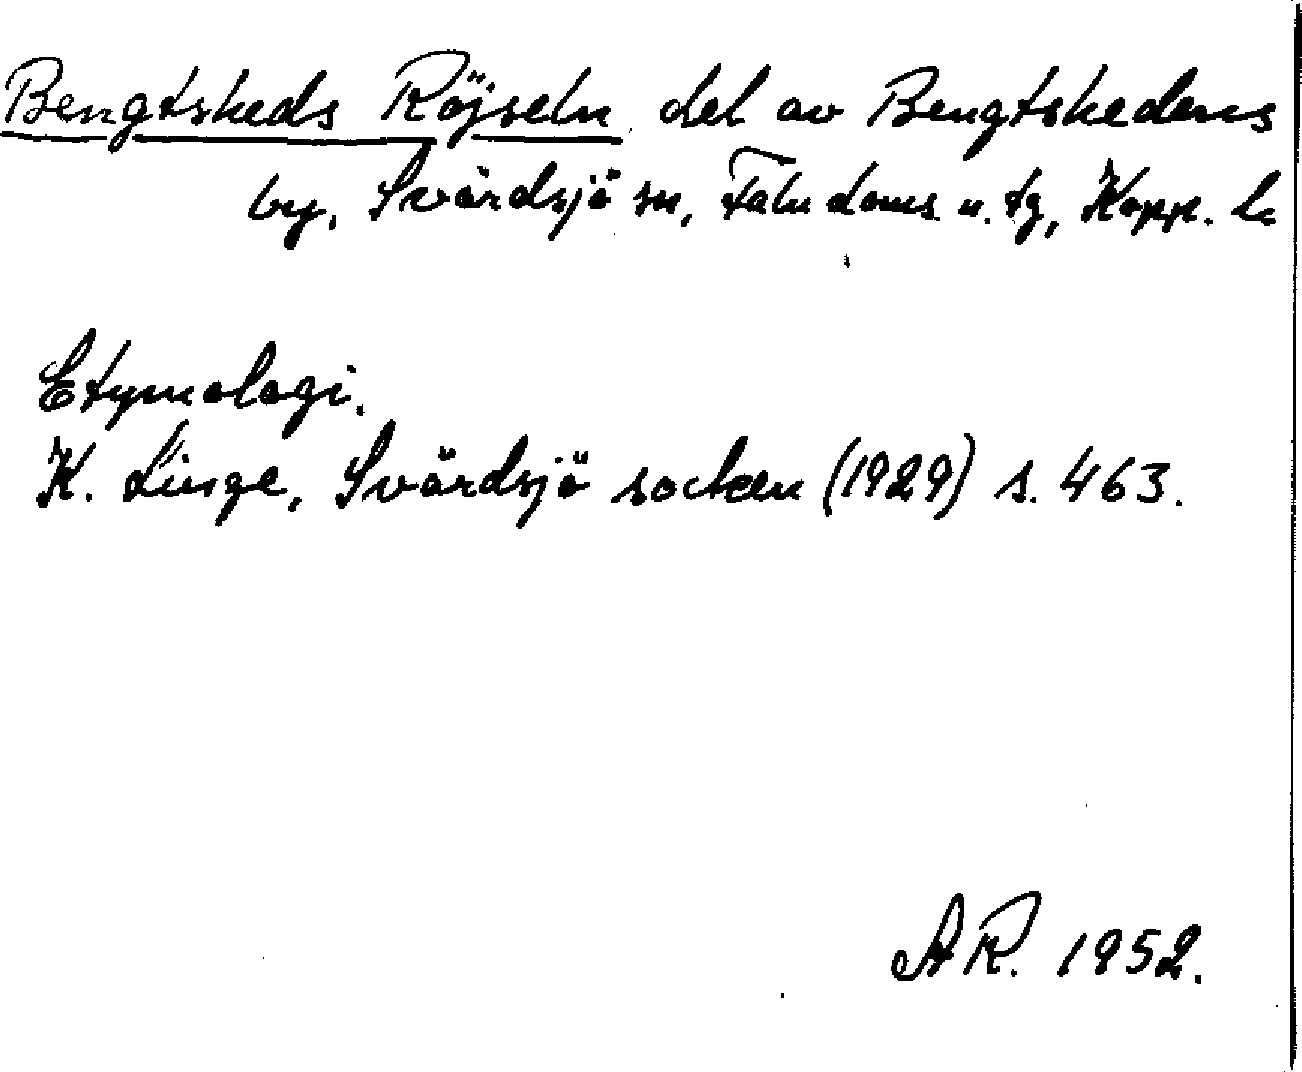 Bengtsheds Röjseln del av Bengtshedens
by, Svärdsjö sn, Falu doms. n. tg, Kopp. l.
Etymologi.
K. Linge, Svärdsjö socken (1929) s. 463.
AR. 1952.